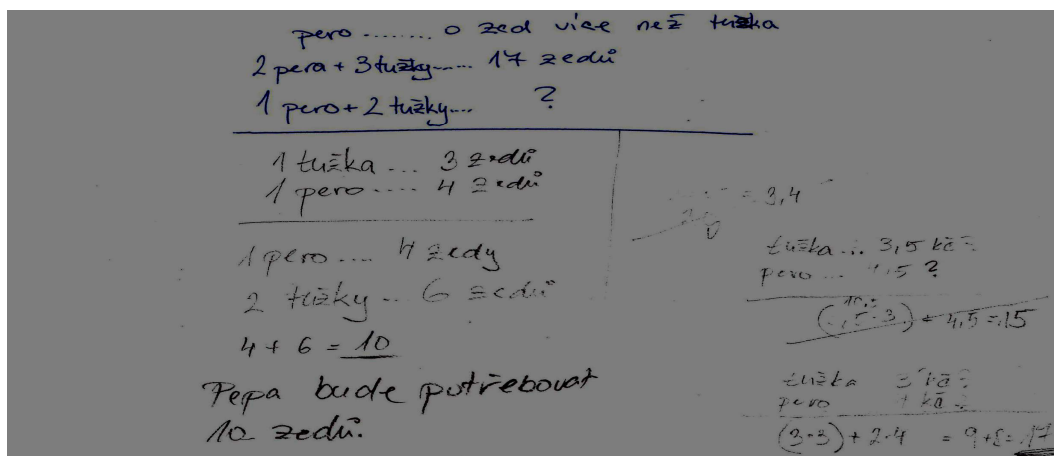 pero ........ o zed více než tužka
2 pera + 3 tužky..... 17 zedů
1 pero + 2 tužky.... ?
1 tužka ... 3 zedů
1 pero ..... 4 zedů
1 pero .... 4 zedy
2 tužky ... 6 zedů
4 + 6 = 10
Pepa bude potřebovat
10 zedů.
= 3,4
tužka ... 3,5 kč ?
pero ... 4,5 ?
+ 4,5 = 15
tužka 3 kč ?
pero kč ?
(3·3) + 2·4 = 9 + 8 = 17